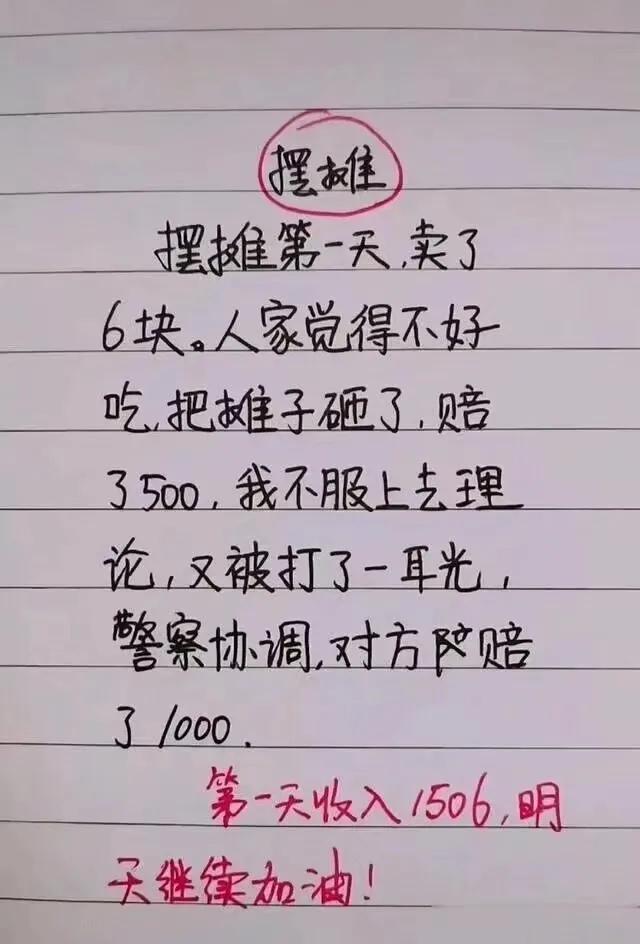 摆摊
摆摊第一天,卖了
6块。人家觉得不好
吃,把摊子砸了,赔
了500,我不服上去理
论,又被打了一耳光,
警察协调,对方赔
了1000.
第一天收入1506,明
天继续加油!